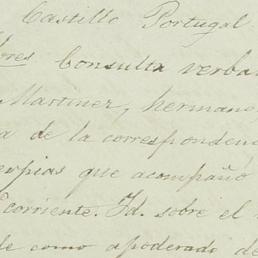 Castillo Portugal
bres Consulta verba
Martinez, hermano
a de la correspondenc
erpias que acompañó
corriente. Id. sobre el
de como apoderado de